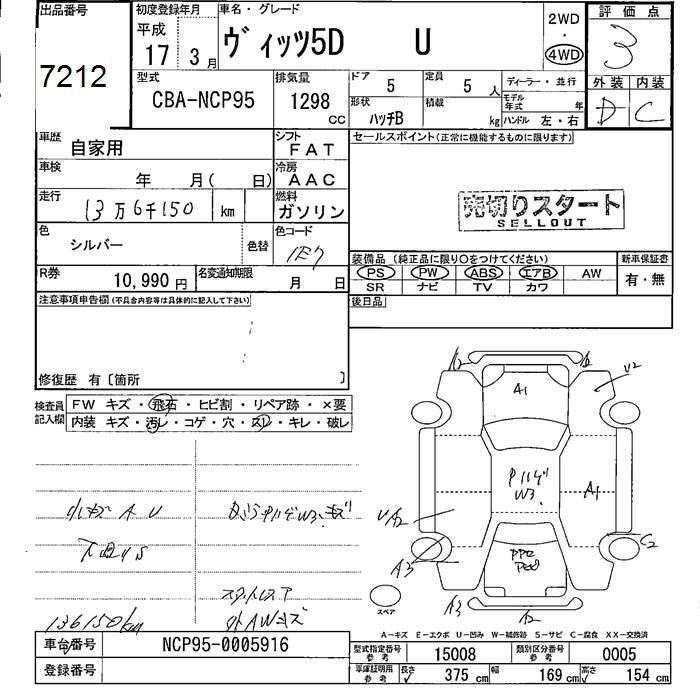 出品番号
7212
初度登録年月
平成
17 3月
車名・グレード
ヴィッツ5D U
2WD
・
4WD
評価点
3
型式
CBA-NCP95
排気量
1298
CC
ドア 5
定員 5人
ディーラー・並行
形状 ハッチB
積載 kg
モデル年式 年
ハンドル 左・右
外装 内装
D C
車歴
自家用
シフト
FAT
セールスポイント(正常に機能するものに限ります)
車検
年 月( 日)
冷房
AAC
走行
13万6千150 km
燃料
ガソリン
売切りスタート
SELLOUT
色
シルバー
色替
色コード
1E7
装備品(純正品に限り○をつけてください)
新車保証書
PS PW ABS エアB AW
有・無
SR ナビ TV カワ
R券
10,990円
名変通知期限
月 日
後日品
注意事項申告欄(不具合内容等は具体的に記入して下さい)
修復歴 有〔箇所 〕
検査員
記入欄
FW キズ・飛石・ヒビ割・リペア跡・×要
内装 キズ・汚レ・コゲ・穴・スレ・キレ・破レ
小キズ A U
下廻りS
136150km
A2
A1
U2
W3
A1
UA2
A3
C2
A3
A2
スペア
A-キズ E-エクボ U-凹み W-補修跡 S-サビ C-腐食 XX-交換済
車台番号
NCP95-0005916
登録番号
型式指定番号
参考
15008
類別区分番号
参考
0005
車庫証明用
参考
長さ 375 cm
幅 169 cm
高さ 154 cm